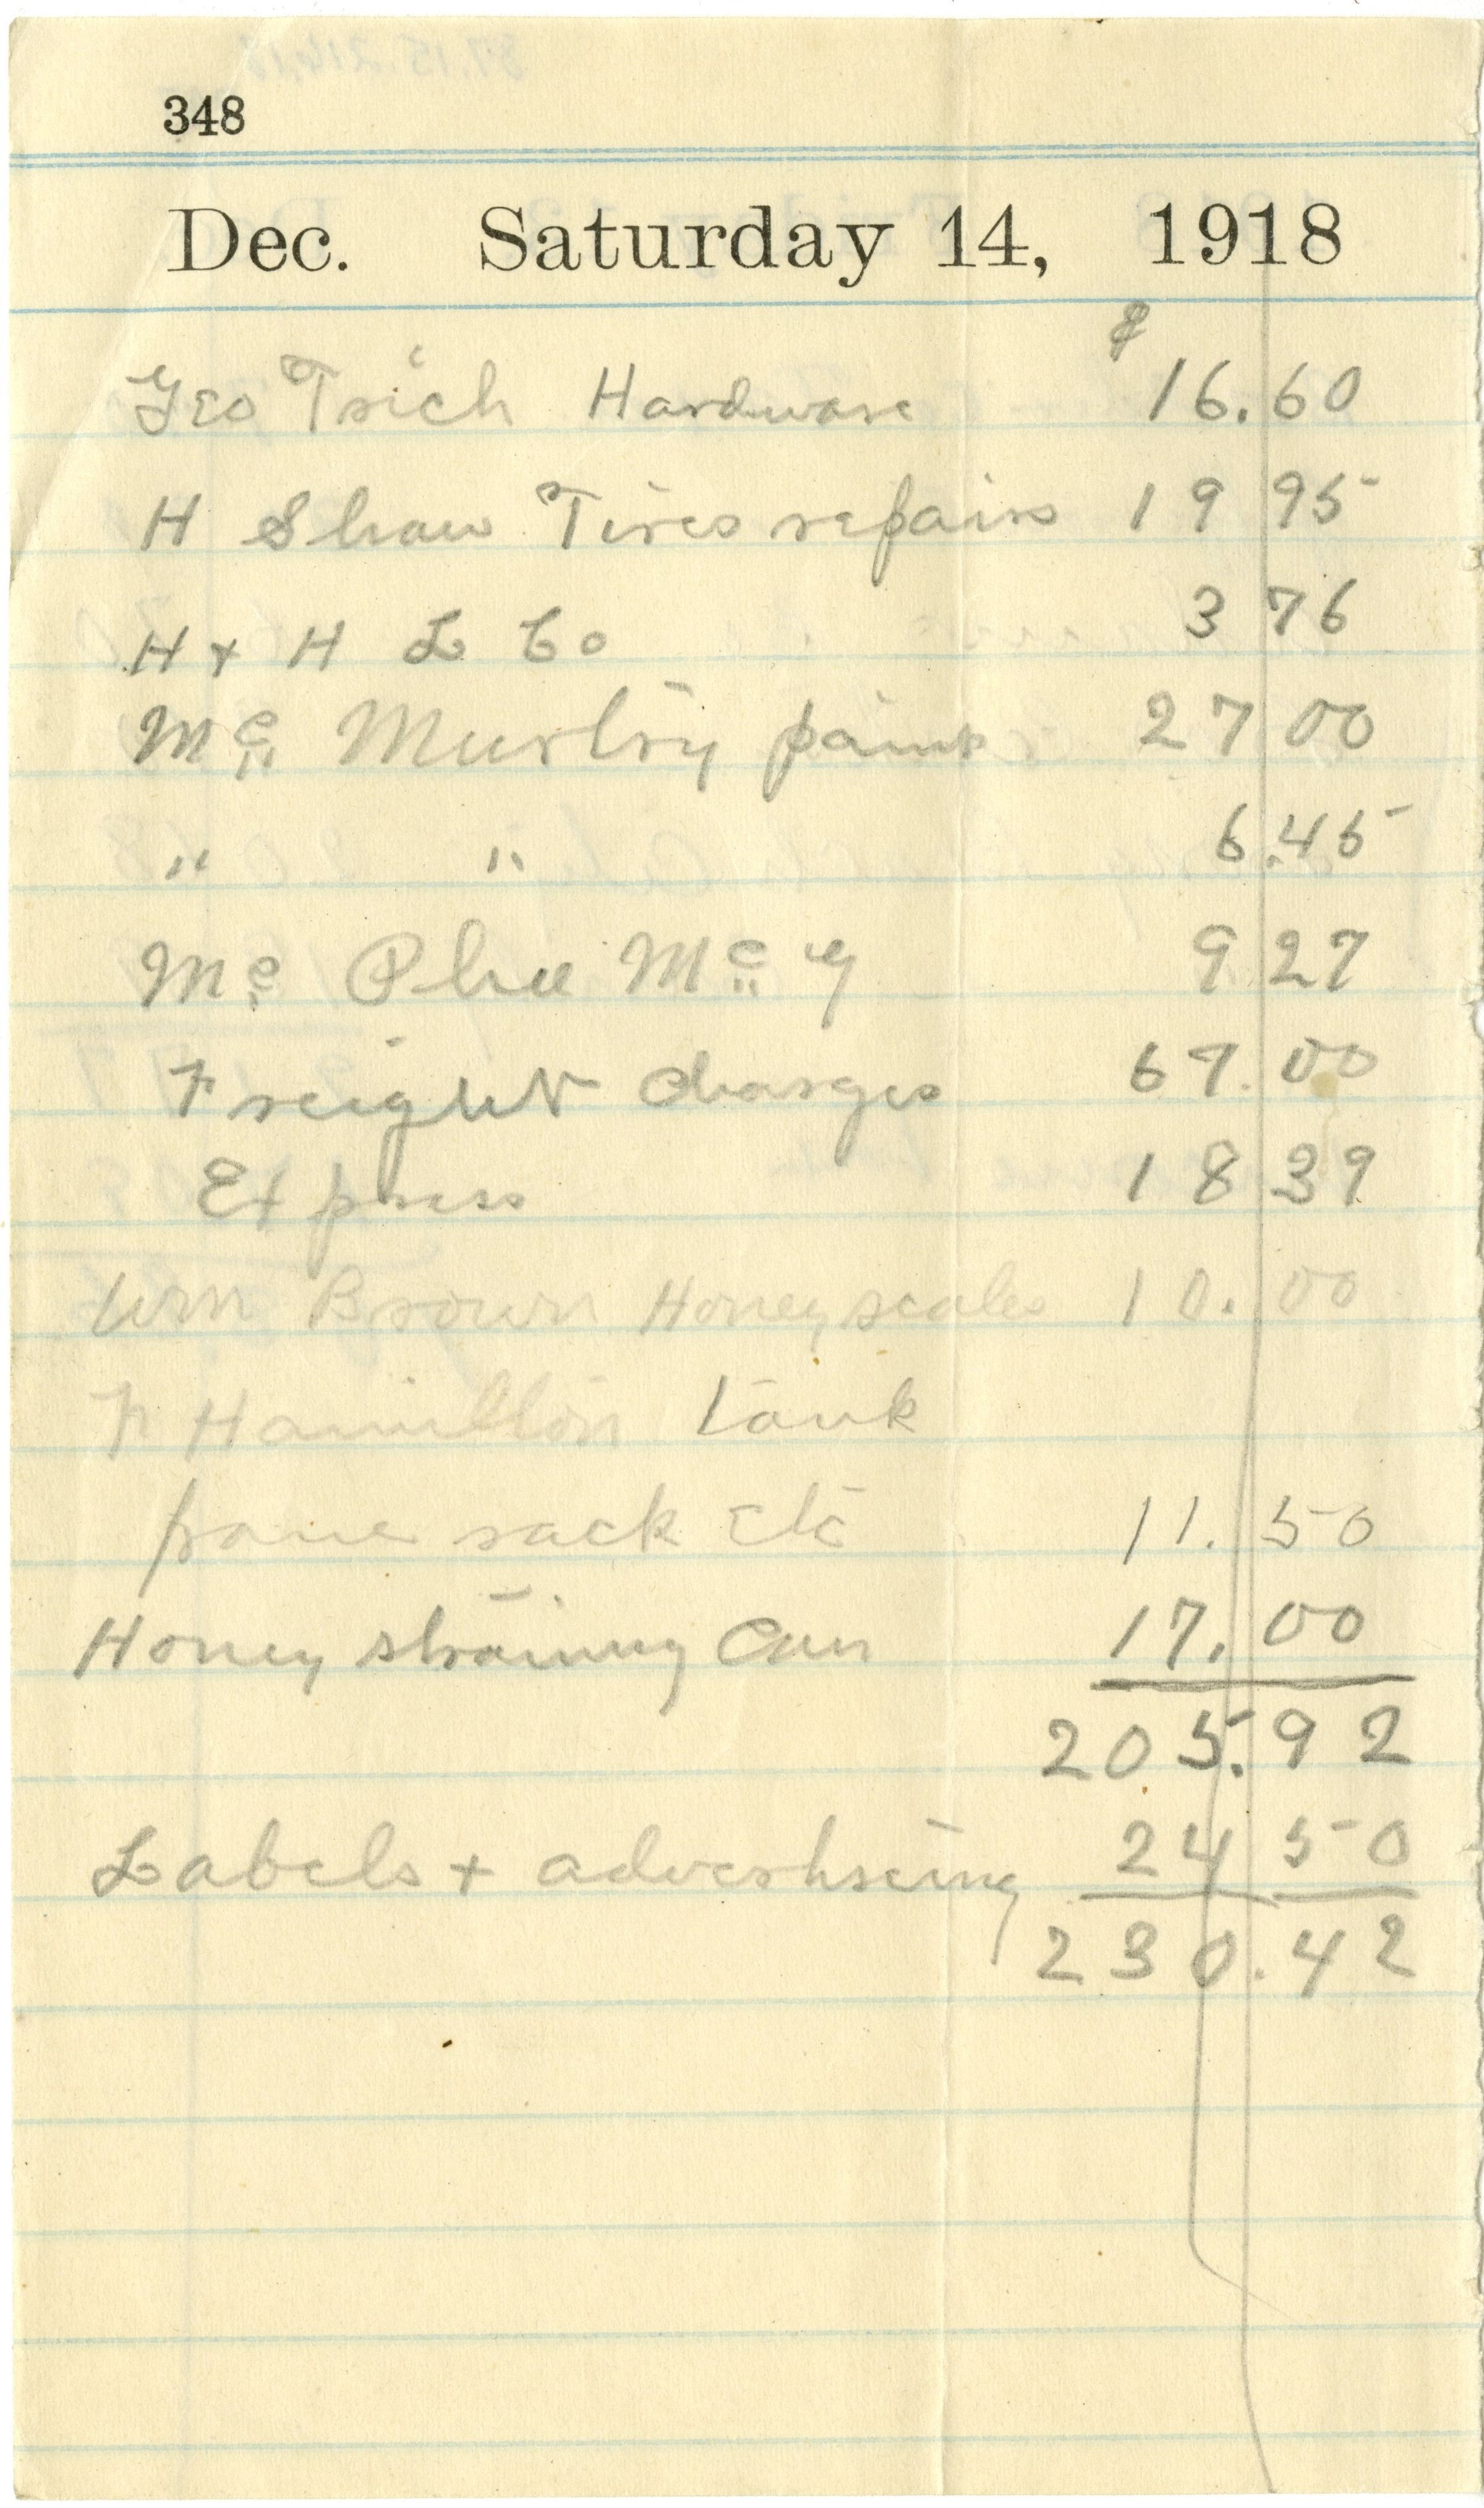 348
Dec. Saturday 14, 1918
$
Geo Trich Hardware 16.60
H Shaw Tires repairs 19 95
H + H L Co 3 76
Mc Murtry paint 27 00
" " 6.45
Mc Phee Mc G 9 27
Freight Charges 67.00
Express 18 39
Wm Brown Honey scales 10.00
F Hamilton tank
frame rack etc 11.50
Honey straining Can 17.00
205.92
Labels + adverhseing 24 50
230.42